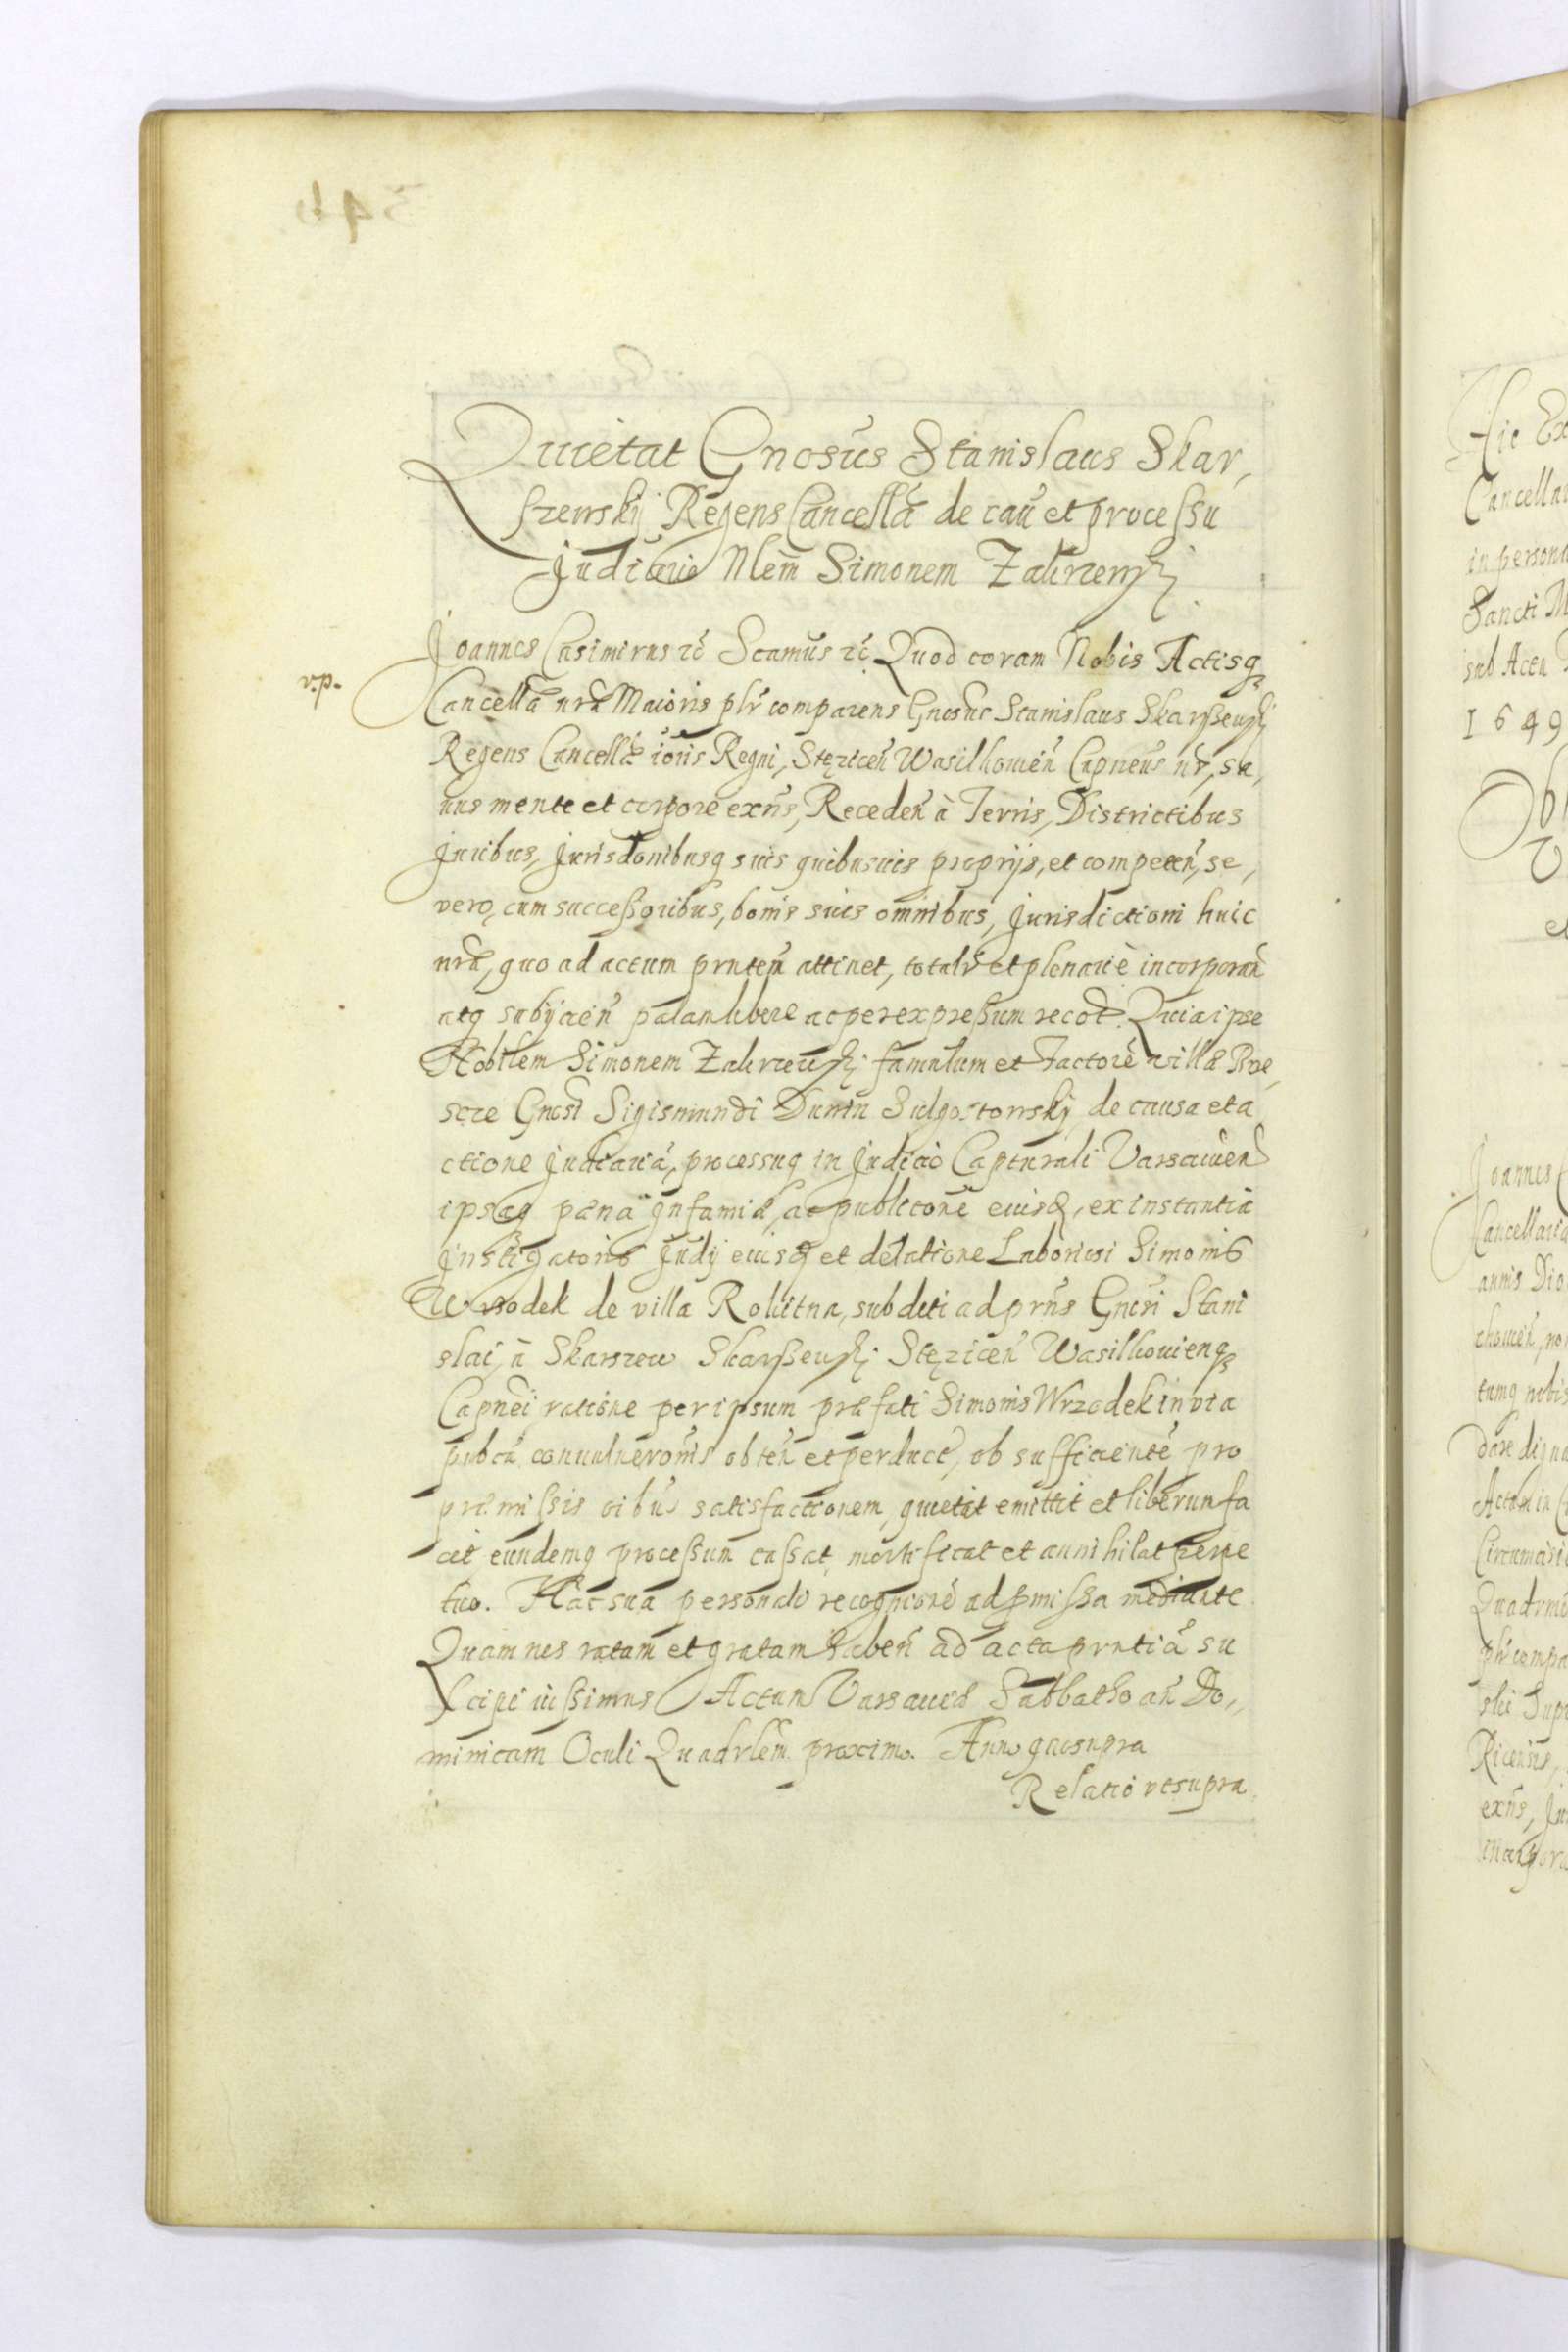 Quietat Gnosus Stanislaus Skar,
szewskij Regens Cancellã de cau et processu
Judiario Nlem Simonem Zakrzewski
Joannes Casimirus rc Scamus rc Quod coram Nobis Actisq
v.p.
Cancellã nrã Maioris plr comparens Gnosus Stanislaus Skarszewski
Regens Cancellæ ioris Regni, Stęzicen Wasilkouien Capneus nr, sa,
nus mente et corpore exns, Receden à Terris, Districtibus
Juribus, Jurisdonibusq suis quibusuis proprijs, et competen, se,
vero, cum successoribus, bonis suis omnibus, Jurisdictioni huic
nrã, quo ad actum prntem attinet, totalr et plenariè incorporan
atq subijcien palam libere ac per expressum recot. Quia ipse
Nobilem Simonem Zakrzewski famulum et Factore villæ
Gnosi Sigismundi Dunin Sulgostowskij de causa et a
ctione Judiaria, processuq in Judicio Capturali Varsauien
ipsaq pæna Infamiæ, ac publicone eiusd, ex instantia
Instigatoris Judij eiusd et delatione Laboriosi Simonis
Wrzodek de villa Rokitna, subditi ad prns Gnosi Stani
slai, à Skarszew Skarszewski Stęzicen Wasilkouienq
Capnei ratione per ipsum præfati Simonis Wrzodek in via
pubca conuulneronis obten et perduct, ob sufficiente pro
præmissis oibus satisfactionem, quietat emittit et liberum fa
cit eundemq processum cassat, mortificat et annihilat perpe
tuo. Hac sua personali recognicone ad pmissa mediante
Quam nos ratam et gratam haben ad acta prntia su
scipi iussimus Actum Varsauiæ Sabbatho an Do,,
minicam Oculi Quadrlem proximo. Anno quosupra
Relatio vtsupra